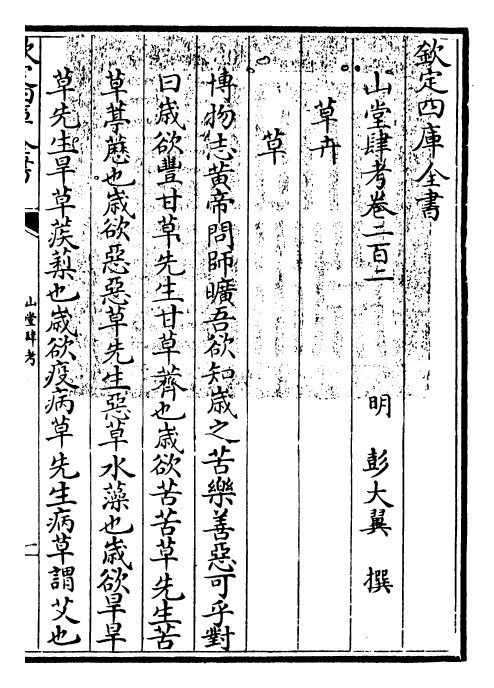 欽定四庫全書
山堂肆考卷二百二
明 彭大翼 撰
草卉
草
博物志黄帝問師曠吾欲知歳之苦樂善惡可乎對
曰歳欲豐甘草先生甘草薺也歳欲苦苦草先生苦
草葶藶也歳欲惡惡草先生惡草水藻也歳欲旱旱
草先生旱草蒺藜也歳欲疫病草先生病草謂艾也
山堂肆考
一